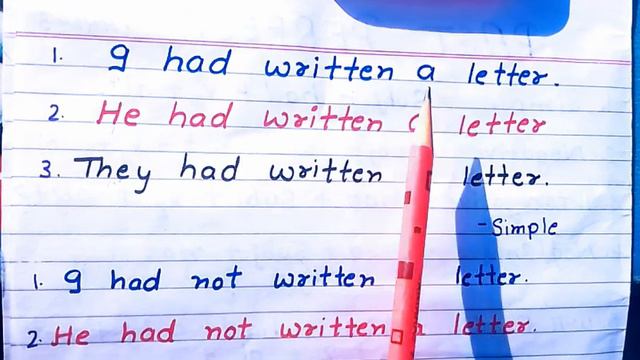 1. I had written a letter.
2. He had written a letter
3. They had written letter.
- Simple
1. I had not written letter.
2. He had not written letter.